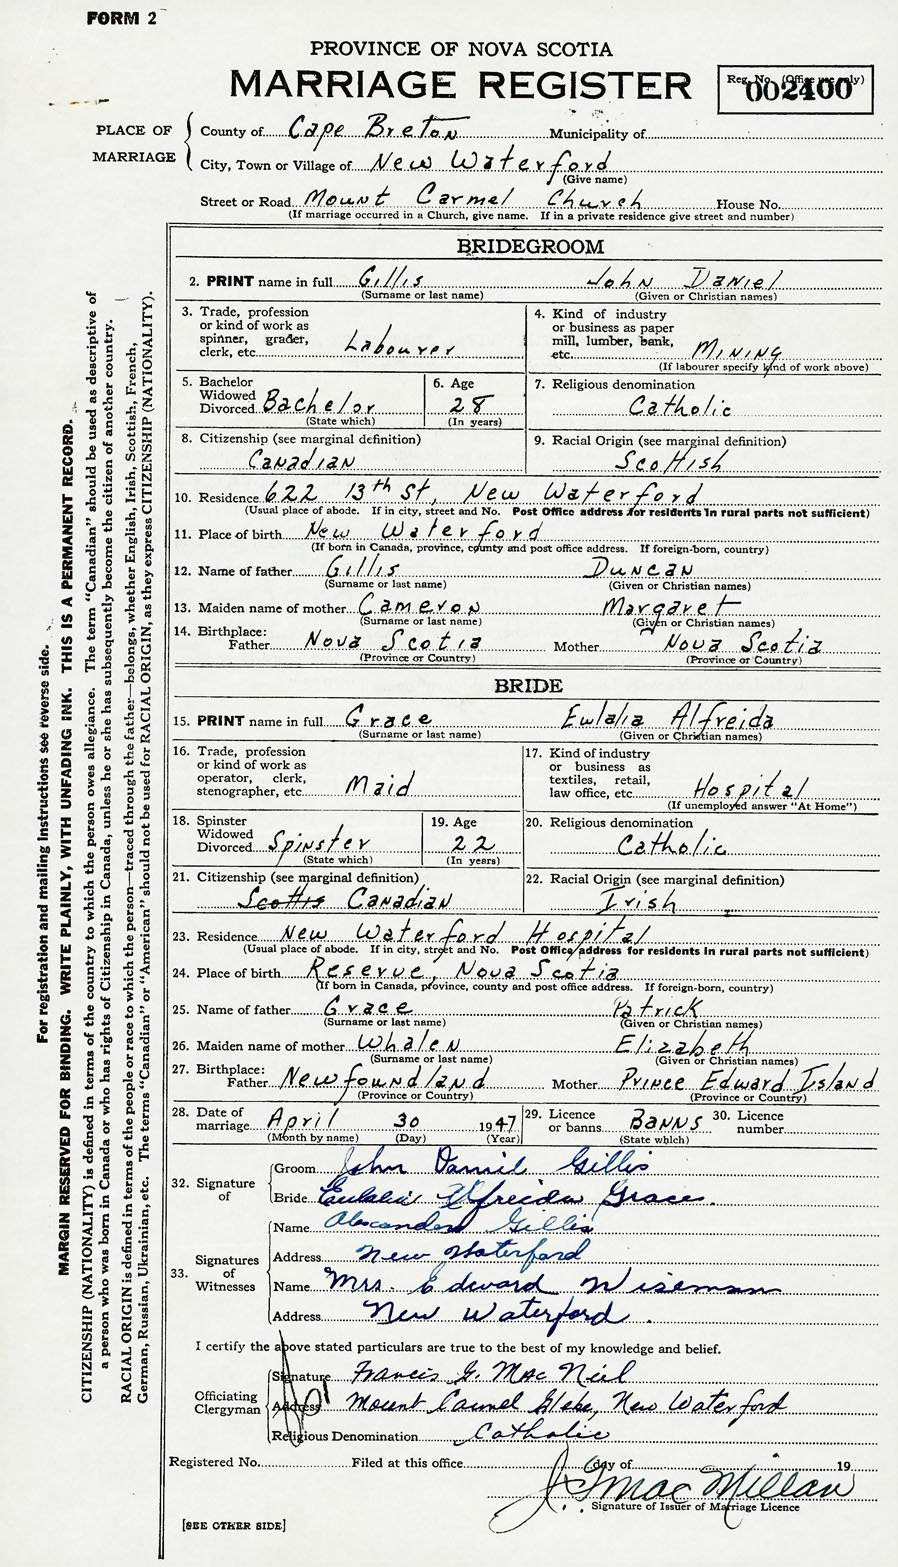 FORM 2
PROVINCE OF NOVA SCOTIA
MARRIAGE REGISTER
Reg. No. (Office use only)
002400
PLACE OF MARRIAGE
County of Cape Breton Municipality of
City, Town or Village of New Waterford
(Give name)
Street or Road Mount Carmel Church House No.
(If marriage occurred in a Church, give name. If in a private residence give street and number)
BRIDEGROOM
2. PRINT name in full Gillis John Daniel
(Surname or last name) (Given or Christian names)
3. Trade, profession or kind of work as spinner, grader, clerk, etc. Labourer
4. Kind of industry or business as paper mill, lumber, bank, etc. Mining
(If labourer specify kind of work above)
5. Bachelor Widowed Divorced Bachelor
(State which)
6. Age 28
(In years)
7. Religious denomination
Catholic
8. Citizenship (see marginal definition)
Canadian
9. Racial Origin (see marginal definition)
Scottish
10. Residence 622 13th St, New Waterford
(Usual place of abode. If in city, street and No. Post Office address for residents in rural parts not sufficient)
11. Place of birth New Waterford
(If born in Canada, province, county and post office address. If foreign-born, country)
12. Name of father Gillis Duncan
(Surname or last name) (Given or Christian Names)
13. Maiden name of mother Cameron Margaret
(Surname or last name) (Given or Christian names)
14. Birthplace: Father Nova Scotia Mother Nova Scotia
(Province or Country) (Province or Country)
BRIDE
15. PRINT name in full Grace Eulalia Alfreida
(Surname or last name) (Given or Christian names)
16. Trade, profession or kind of work as operator, clerk, stenographer, etc. Maid
17. Kind of industry or business as textiles, retail, law office, etc. Hospital
(If unemployed answer "At Home")
18. Spinster Widowed Divorced Spinster
(State which)
19. Age 22
(In years)
20. Religious denomination
Catholic
21. Citizenship (see marginal definition)
Scottis Canadian
22. Racial Origin (see marginal definition)
Irish
23. Residence New Waterford Hospital
(Usual place of abode. If in city, street and No. Post Office address for residents in rural parts not sufficient)
24. Place of birth Reserve, Nova Scotia
(If born in Canada, province, county and post office address. If foreign-born, country)
25. Name of father Grace Patrick
(Surname or last name) (Given or Christian names)
26. Maiden name of mother Whalen Elizabeth
(Surname or last name) (Given or Christian names)
27. Birthplace: Father Newfoundland Mother Prince Edward Island
(Province or Country) (Province or Country)
28. Date of marriage April 30 1947
(Month by name) (Day) (Year)
29. Licence or banns Banns
(State which)
30. Licence number
32. Signature of
Groom John Daniel Gillis
Bride Eulalia Alfreida Grace.
33. Signatures of Witnesses
Name Alexander Gillis
Address New Waterford
Name Mrs. Edward Wiseman
Address New Waterford.
I certify the above stated particulars are true to the best of my knowledge and belief.
Officiating Clergyman
Signature Francis G. MacNeil
Address Mount Carmel Glebe, New Waterford
Religious Denomination Catholic
Registered No. Filed at this office day of 19
J. G. MacMillan
Signature of Issuer of Marriage Licence
[SEE OTHER SIDE]
For registration and mailing instructions see reverse side.
MARGIN RESERVED FOR BINDING. WRITE PLAINLY, WITH UNFADING INK. THIS IS A PERMANENT RECORD.
CITIZENSHIP (NATIONALITY) is defined in terms of the country to which the person owes allegiance. The term "Canadian" should be used as descriptive of
a person who was born in Canada or who has rights of Citizenship in Canada, unless he or she has subsequently become the citizen of another country.
RACIAL ORIGIN is defined in terms of the people or race to which the person—traced through the father—belongs, whether English, Irish, Scottish, French,
German, Russian, Ukrainian, etc. The terms "Canadian" or "American" should not be used for RACIAL ORIGIN, as they express CITIZENSHIP (NATIONALITY).